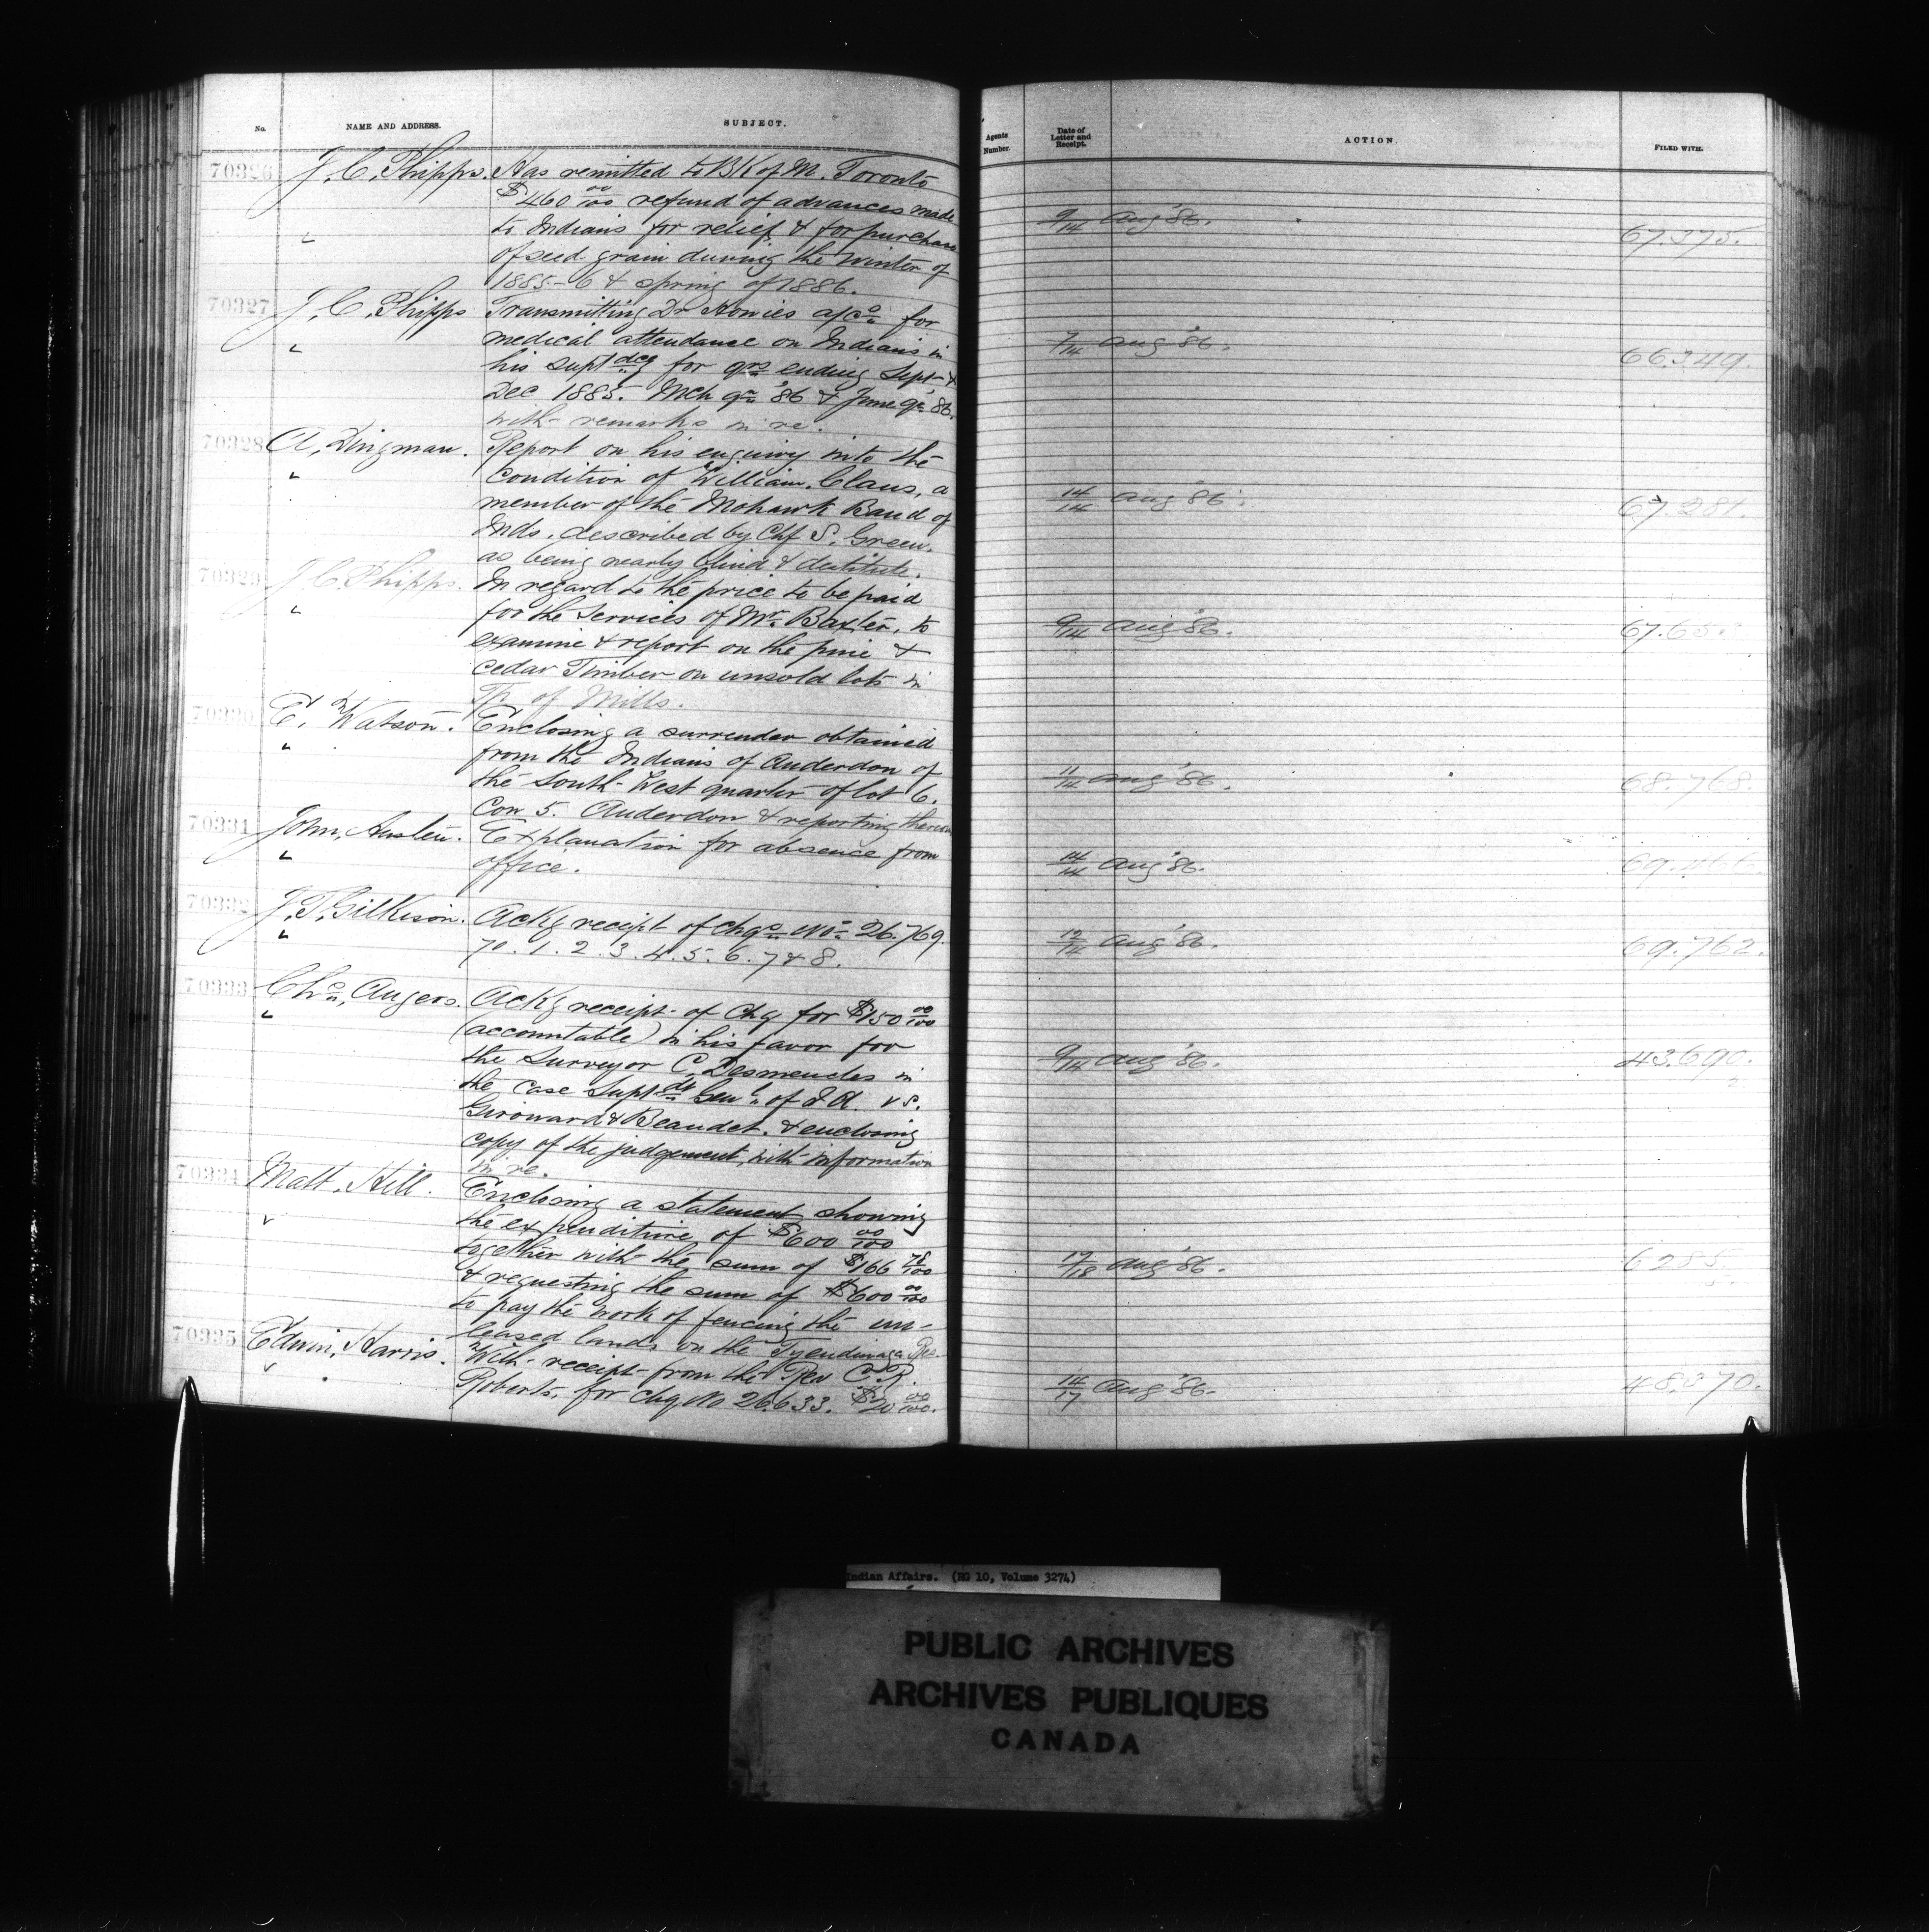 No.
NAME AND ADDRESS.
SUBJECT.
70326
J. C. Phipps.
Has remitted to BK of M. Toronto
$460 00/100 refund of advances made
to Indians for relief & for purchase
of seed grain during the winter of
1885-6 & spring of 1886.
70327
J. C. Phipps
Transmitting Dr a/cs for
medical attendance on Indians in
his suptdcy for qrs ending Sept &
Dec 1885. Mch qr '86 & June qr '86.
with remarks in re.
70328
A. Dingman.
Report on his enquiry into the
condition of William Claus, a
member of the Mohawk Band of
Inds. described by Chf S. Green.
as being nearly blind & destitute.
70329
J. C. Phipps.
In regard to the price to be paid
for the services of Mr. Baxter, to
examine & report on the pine &
cedar Timber on unsold lots in
Tp of Mills.
70330
E. Watson.
Enclosing a surrender obtained
from the Indians of Anderdon of
the South-West quarter of lot 6.
Con 5. Anderdon & reporting thereon
70331
John, Austen.
Explanation for absence from
office.
70332
J. T. Gilkison.
Ackg receipt of chqs Nos 26.769.
70. 1. 2. 3. 4. 5. 6. 7 & 8.
70333
Chs, Angers.
Ackg receipt of Chq for $150 00/100
(accountable) in his favor for
the Surveyor C. Desmeules in
the case Suptdt Genl of I A. vs.
Girouard & Beaudet. & enclosing
copy of the judgement, with information
in re.
70334
Matt. Hill.
Enclosing a statement showing
the expenditure of $600 00/100
together with the sum of $166 78/100
& requesting the sum of $600 00/100
to pay the work of fencing the un-
leased lands on the Tyendinaga Res.
70335
Edwin, Harris.
With receipt from the Rev C. R.
Roberts. for chq No 26.633. $20 00/100.
Agents
Number.
Date of
Letter and
Receipt.
ACTION.
FILED WITH.
9/14 Aug '86.
67.375.
7/14 Aug '86.
66.349.
14/14 Aug '86.
67.281.
9/14 Aug '86.
11/14 Aug '86.
68.768.
14/14 Aug '86.
69.466.
12/14 Aug '86.
69.762.
9/14 Aug '86.
43.690.
17/18 Aug '86.
14/17 Aug '86.
48.370.
Indian Affairs. (RG 10, Volume 3274)
PUBLIC ARCHIVES
ARCHIVES PUBLIQUES
CANADA